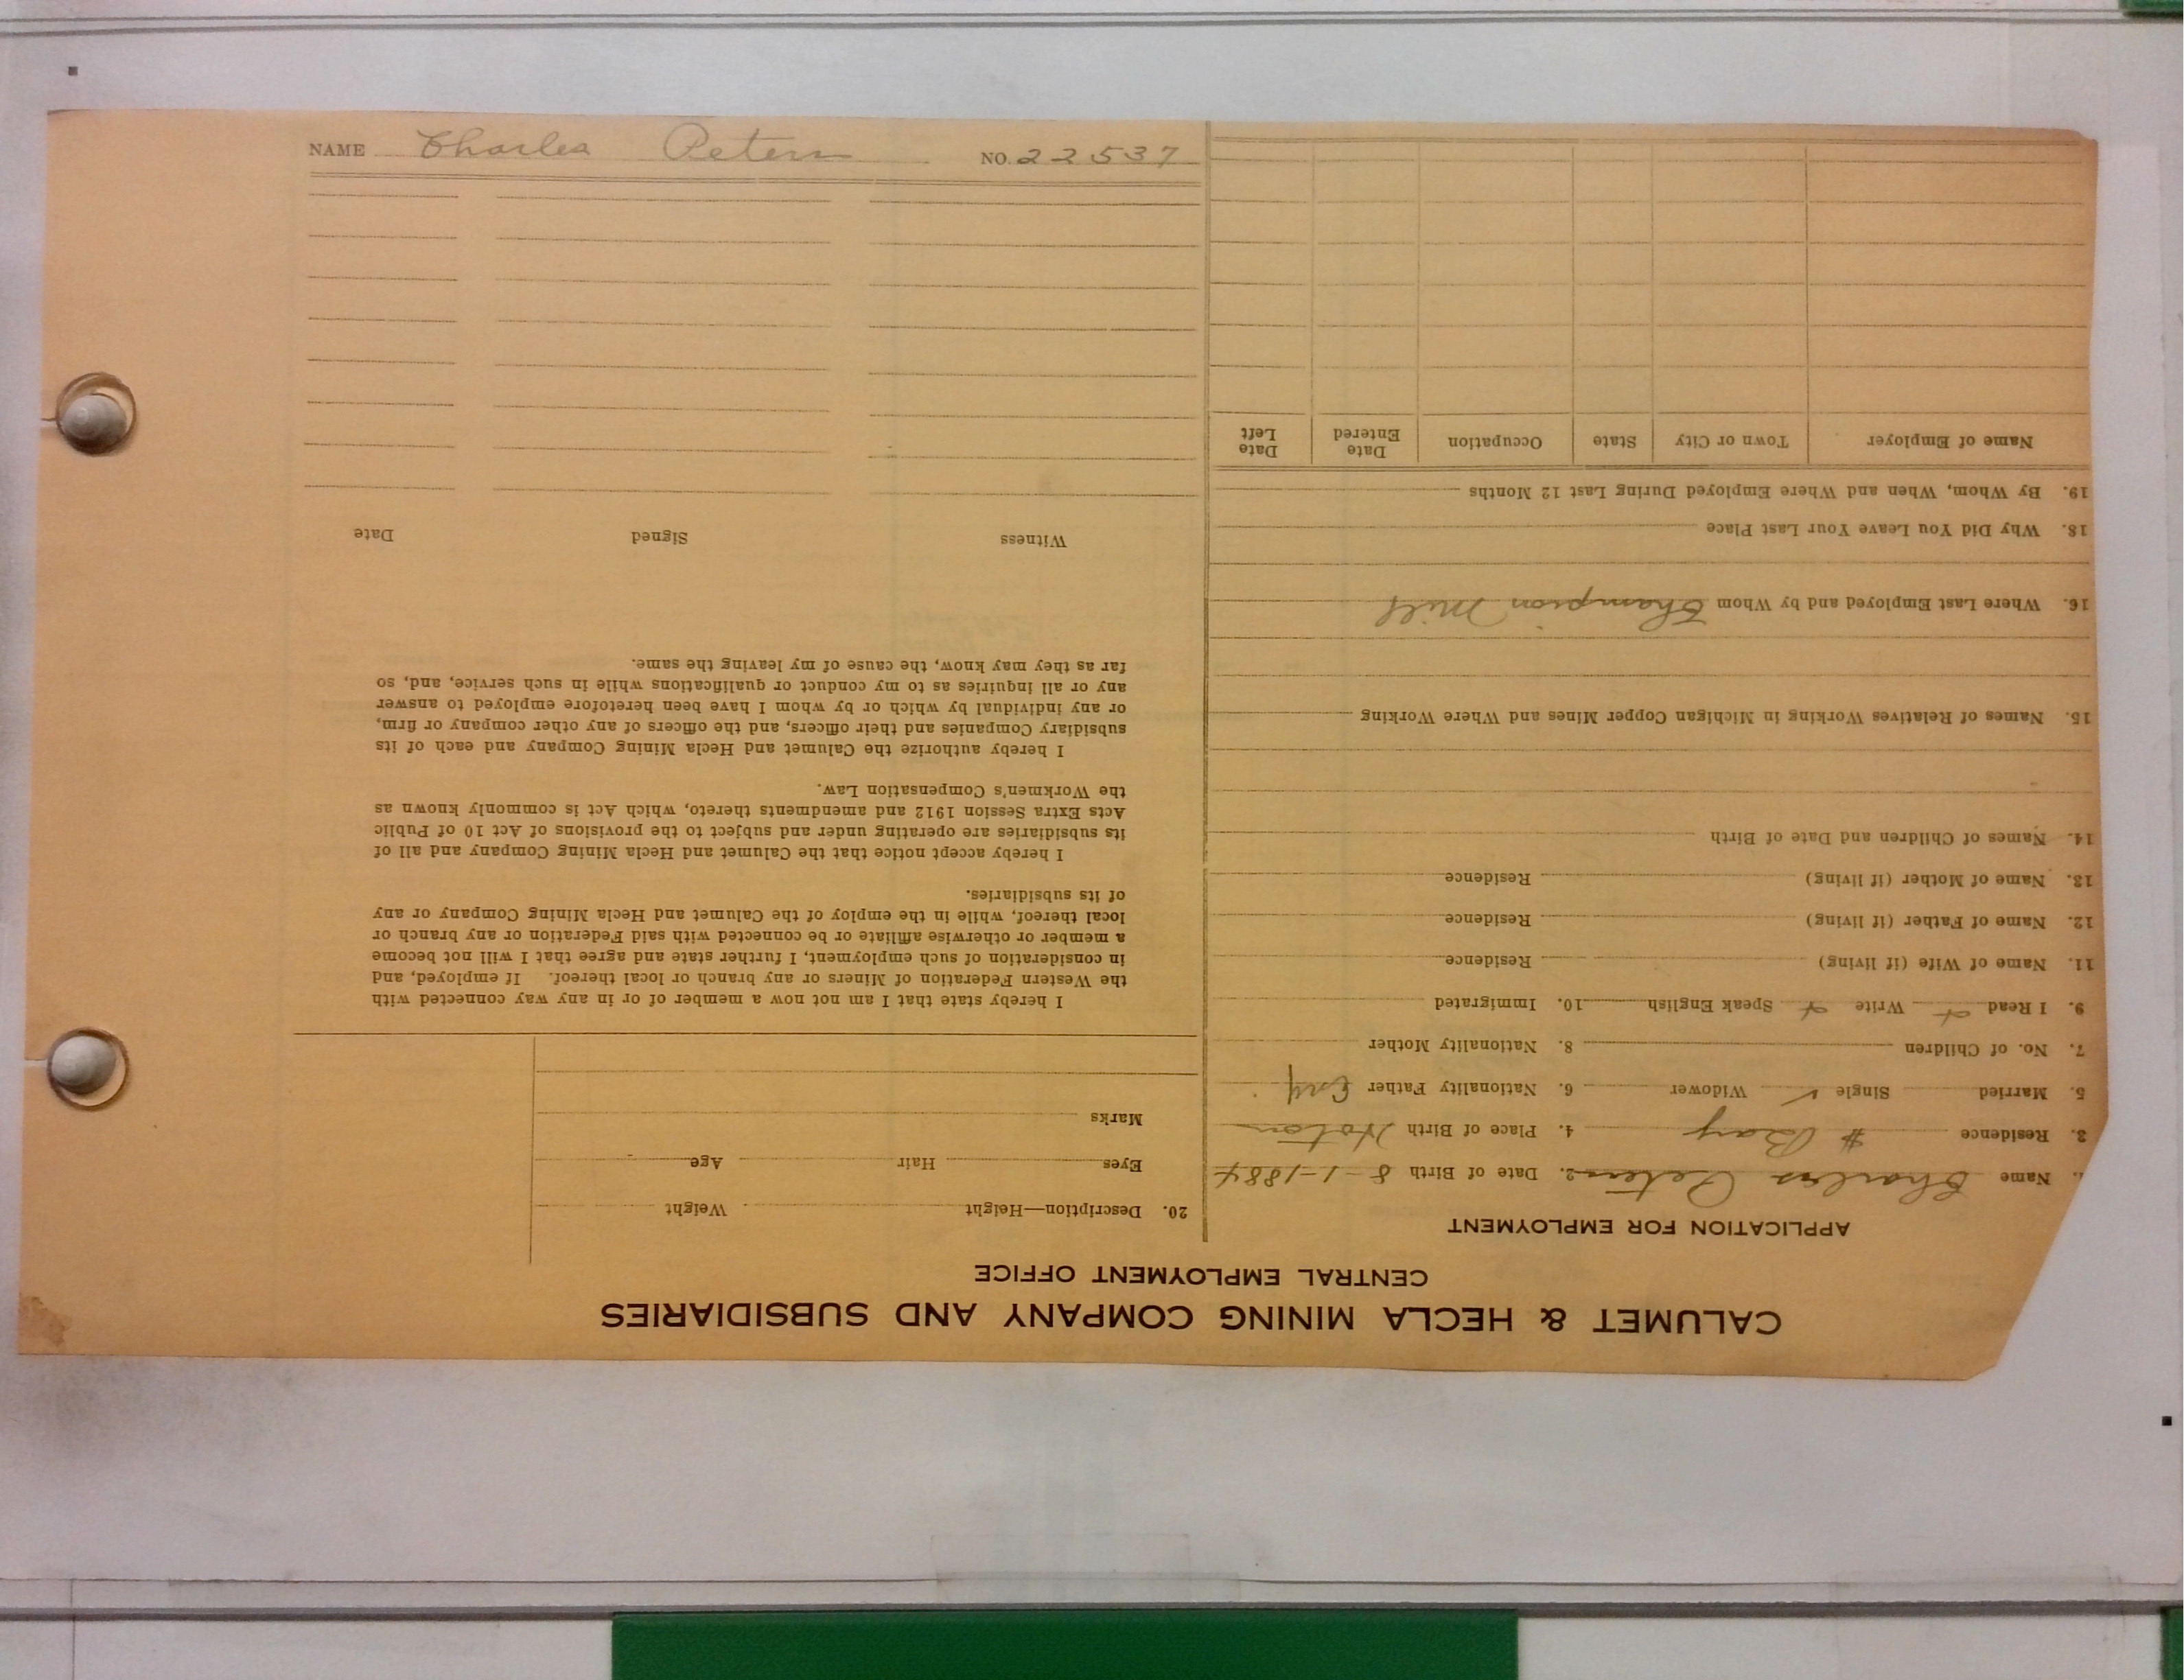 CALUMET & HECLA MINING COMPANY AND SUBSIDIARIES
CENTRAL EMPLOYMENT OFFICE
APPLICATION FOR EMPLOYMENT
Name Charles Peters 2. Date of Birth 8-1-1884
3. Residence # Bay 4. Place of Birth
5. Married Single ✓ Widower 6. Nationality Father Eng
7. No. of Children 8. Nationality Mother
9. I Read Write Speak English 10. Immigrated
11. Name of Wife (if living) Residence
12. Name of Father (if living) Residence
13. Name of Mother (if living) Residence
14. Names of Children and Date of Birth
15. Names of Relatives Working in Michigan Copper Mines and Where Working
16. Where Last Employed and by Whom Champion Mill
18. Why Did You Leave Your Last Place
19. By Whom, When and Where Employed During Last 12 Months
Name of Employer Town or City State Occupation Date Entered Date Left
20. Description—Height Weight
Eyes Hair Age
Marks
I hereby state that I am not now a member of or in any way connected with
the Western Federation of Miners or any branch or local thereof. If employed, and
in consideration of such employment, I further state and agree that I will not become
a member or otherwise affiliate or be connected with said Federation or any branch or
local thereof, while in the employ of the Calumet and Hecla Mining Company or any
of its subsidiaries.
I hereby accept notice that the Calumet and Hecla Mining Company and all of
its subsidiaries are operating under and subject to the provisions of Act 10 of Public
Acts Extra Session 1912 and amendments thereto, which Act is commonly known as
the Workmen's Compensation Law.
I hereby authorize the Calumet and Hecla Mining Company and each of its
subsidiary Companies and their officers, and the officers of any other company or firm,
or any individual by which or by whom I have been heretofore employed to answer
any or all inquiries as to my conduct or qualifications while in such service, and, so
far as they may know, the cause of my leaving the same.
Witness Signed Date
NAME Charles Peters NO. 22537